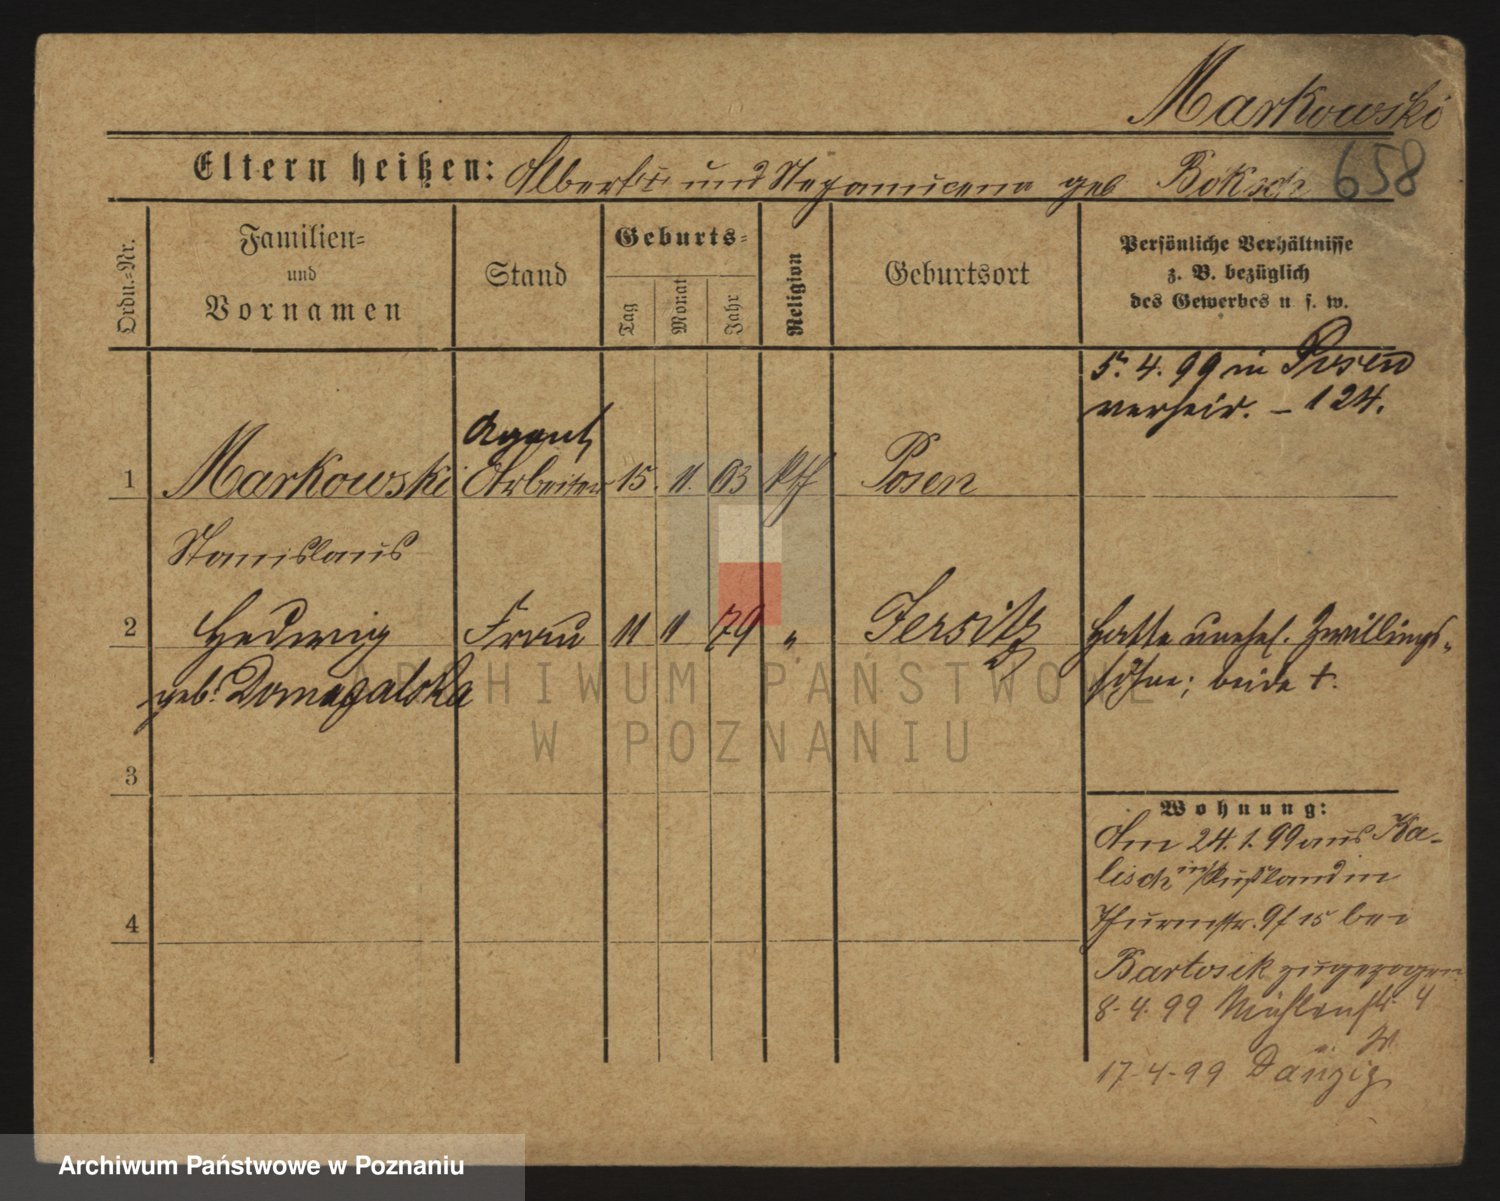 Markowski
658
Eltern heißen: Albert und geb
Ordn.-Nr.
Familien-
und
Vornamen
Stand
Geburts-
Tag
Monat
Jahr
Religion
Geburtsort
Persönliche Verhältnisse
z. B. bezüglich
des Gewerbes u s. w.
5. 4. 99 in Posen
verheir. - 124.
Agent
1 Markowski Arbeiter 15. 11. 63 kth Posen
Stanislaus
2 Hedwig Frau 11 11 79 " Jersitz
geb. Domagalska
Hatte unehel. Zwillings-
söhne; beide †.
3
4
Wohnung:
Am 24. 1. 99 aus Ka-
lisch in Rußland in
Thurmstr. 9/15 bei
Bartosik zugezogen
8. 4. 99 Mühlenstr. 4
17-4-99 Danzig
ARCHIWUM PAŃSTWOWE
W POZNANIU
Archiwum Państwowe w Poznaniu